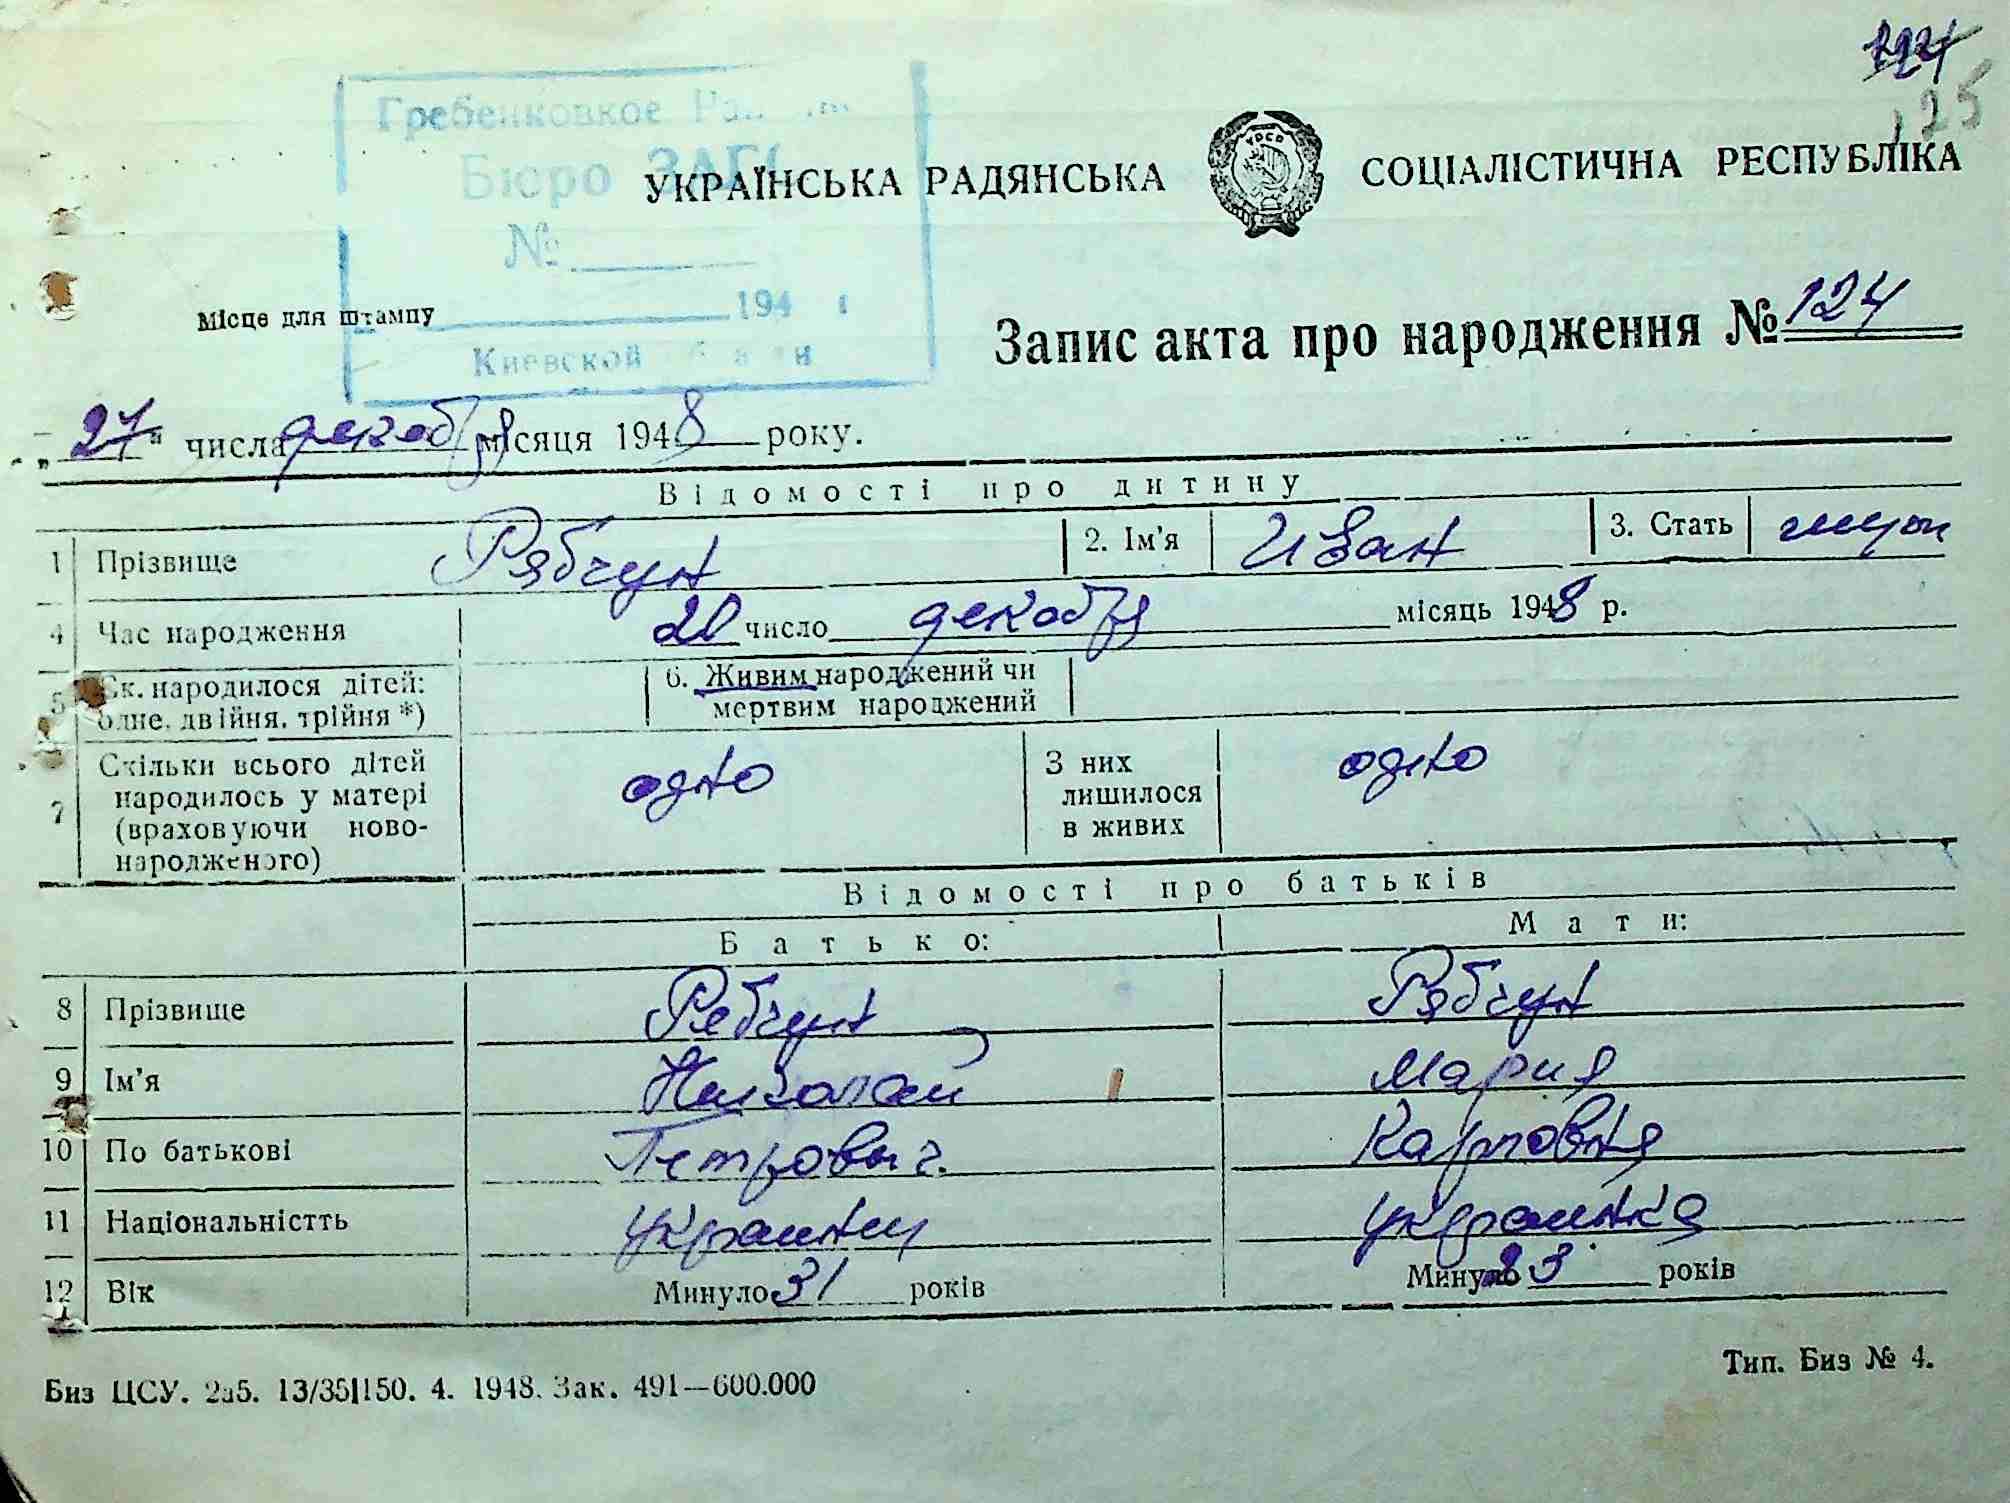 125
Гребенковкое
Бюро ЗАГС
№
194
Киевской
УКРАЇНСЬКА РАДЯНСЬКА СОЦІАЛІСТИЧНА РЕСПУБЛІКА
УРСР
Місце для штампу
Запис акта про народження № 124
„27“ числа декабря місяця 1948 року.
Відомості про дитину
1 Прізвище Рябчун 2. Ім'я Иван 3. Стать муж
4 Час народження 20 число декабря місяць 1948 р.
5 Ск. народилося дітей: одне, двійня, трійня *) 6. Живим народжений чи мертвим народжений
7 Скільки всього дітей народилось у матері (враховуючи ново-народженого) одно З них лишилося в живих одно
Відомості про батьків
Батько: Мати:
8 Прізвище Рябчун Рябчун
9 Ім'я Николай Мария
10 По батькові Петрович. Карповна
11 Національністть украинец украинка
12 Вік Минуло 31 років Минуло 23 років
Биз ЦСУ. 2а5. 13/35|150. 4. 1948. Зак. 491—600.000
Тип. Биз № 4.